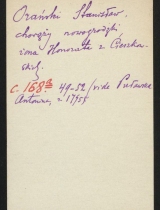 Orański Stanisław,
chorąży nowogródzki
żona Honorata z Cieszkow-
skich.
c. 1682 49-52/vide Puławska
Antonina, z 1785